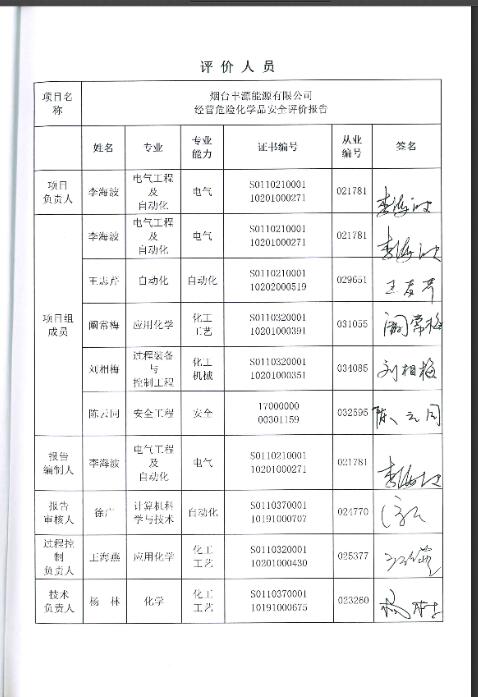 评价人员
项目名称
烟台丰源能源有限公司
经营危险化学品安全评价报告
姓名 专业 专业能力 证书编号 从业编号 签名
项目负责人 李海波 电气工程及自动化 电气 S011021000110201000271 021781 李海波
项目组成员
李海波 电气工程及自动化 电气 S011021000110201000271 021781 李海波
王志芹 自动化 自动化 S011021000110202000519 029651
阚常梅 应用化学 化工工艺 S011032000110201000391 031055 阚常梅
刘相梅 过程装备与控制工程 化工机械 S011032000110201000351 034085 刘相梅
陈云同 安全工程 安全 1700000000301159 032595 陈云同
报告编制人 李海波 电气工程及自动化 电气 S011021000110201000271 021781 李海波
报告审核人 徐广 计算机科学与技术 自动化 S011037000110191000707 024770
过程控制负责人 王海燕 应用化学 化工工艺 S011032000110201000430 025377
技术负责人 杨林 化学 化工工艺 S011037000110191000675 023280